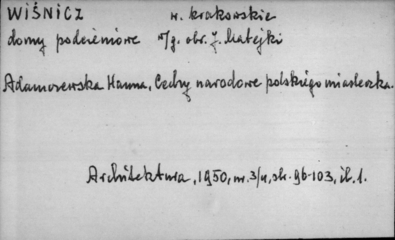 WIŚNICZ w. krakowskie
domy podcieniowe w/g. obr. J. Matejki
Adamczewska Hanna, Cechy narodowe polskiego miasteczka.
Architektura, 1950, nr. 3/4, str. 96-103, il. 1.